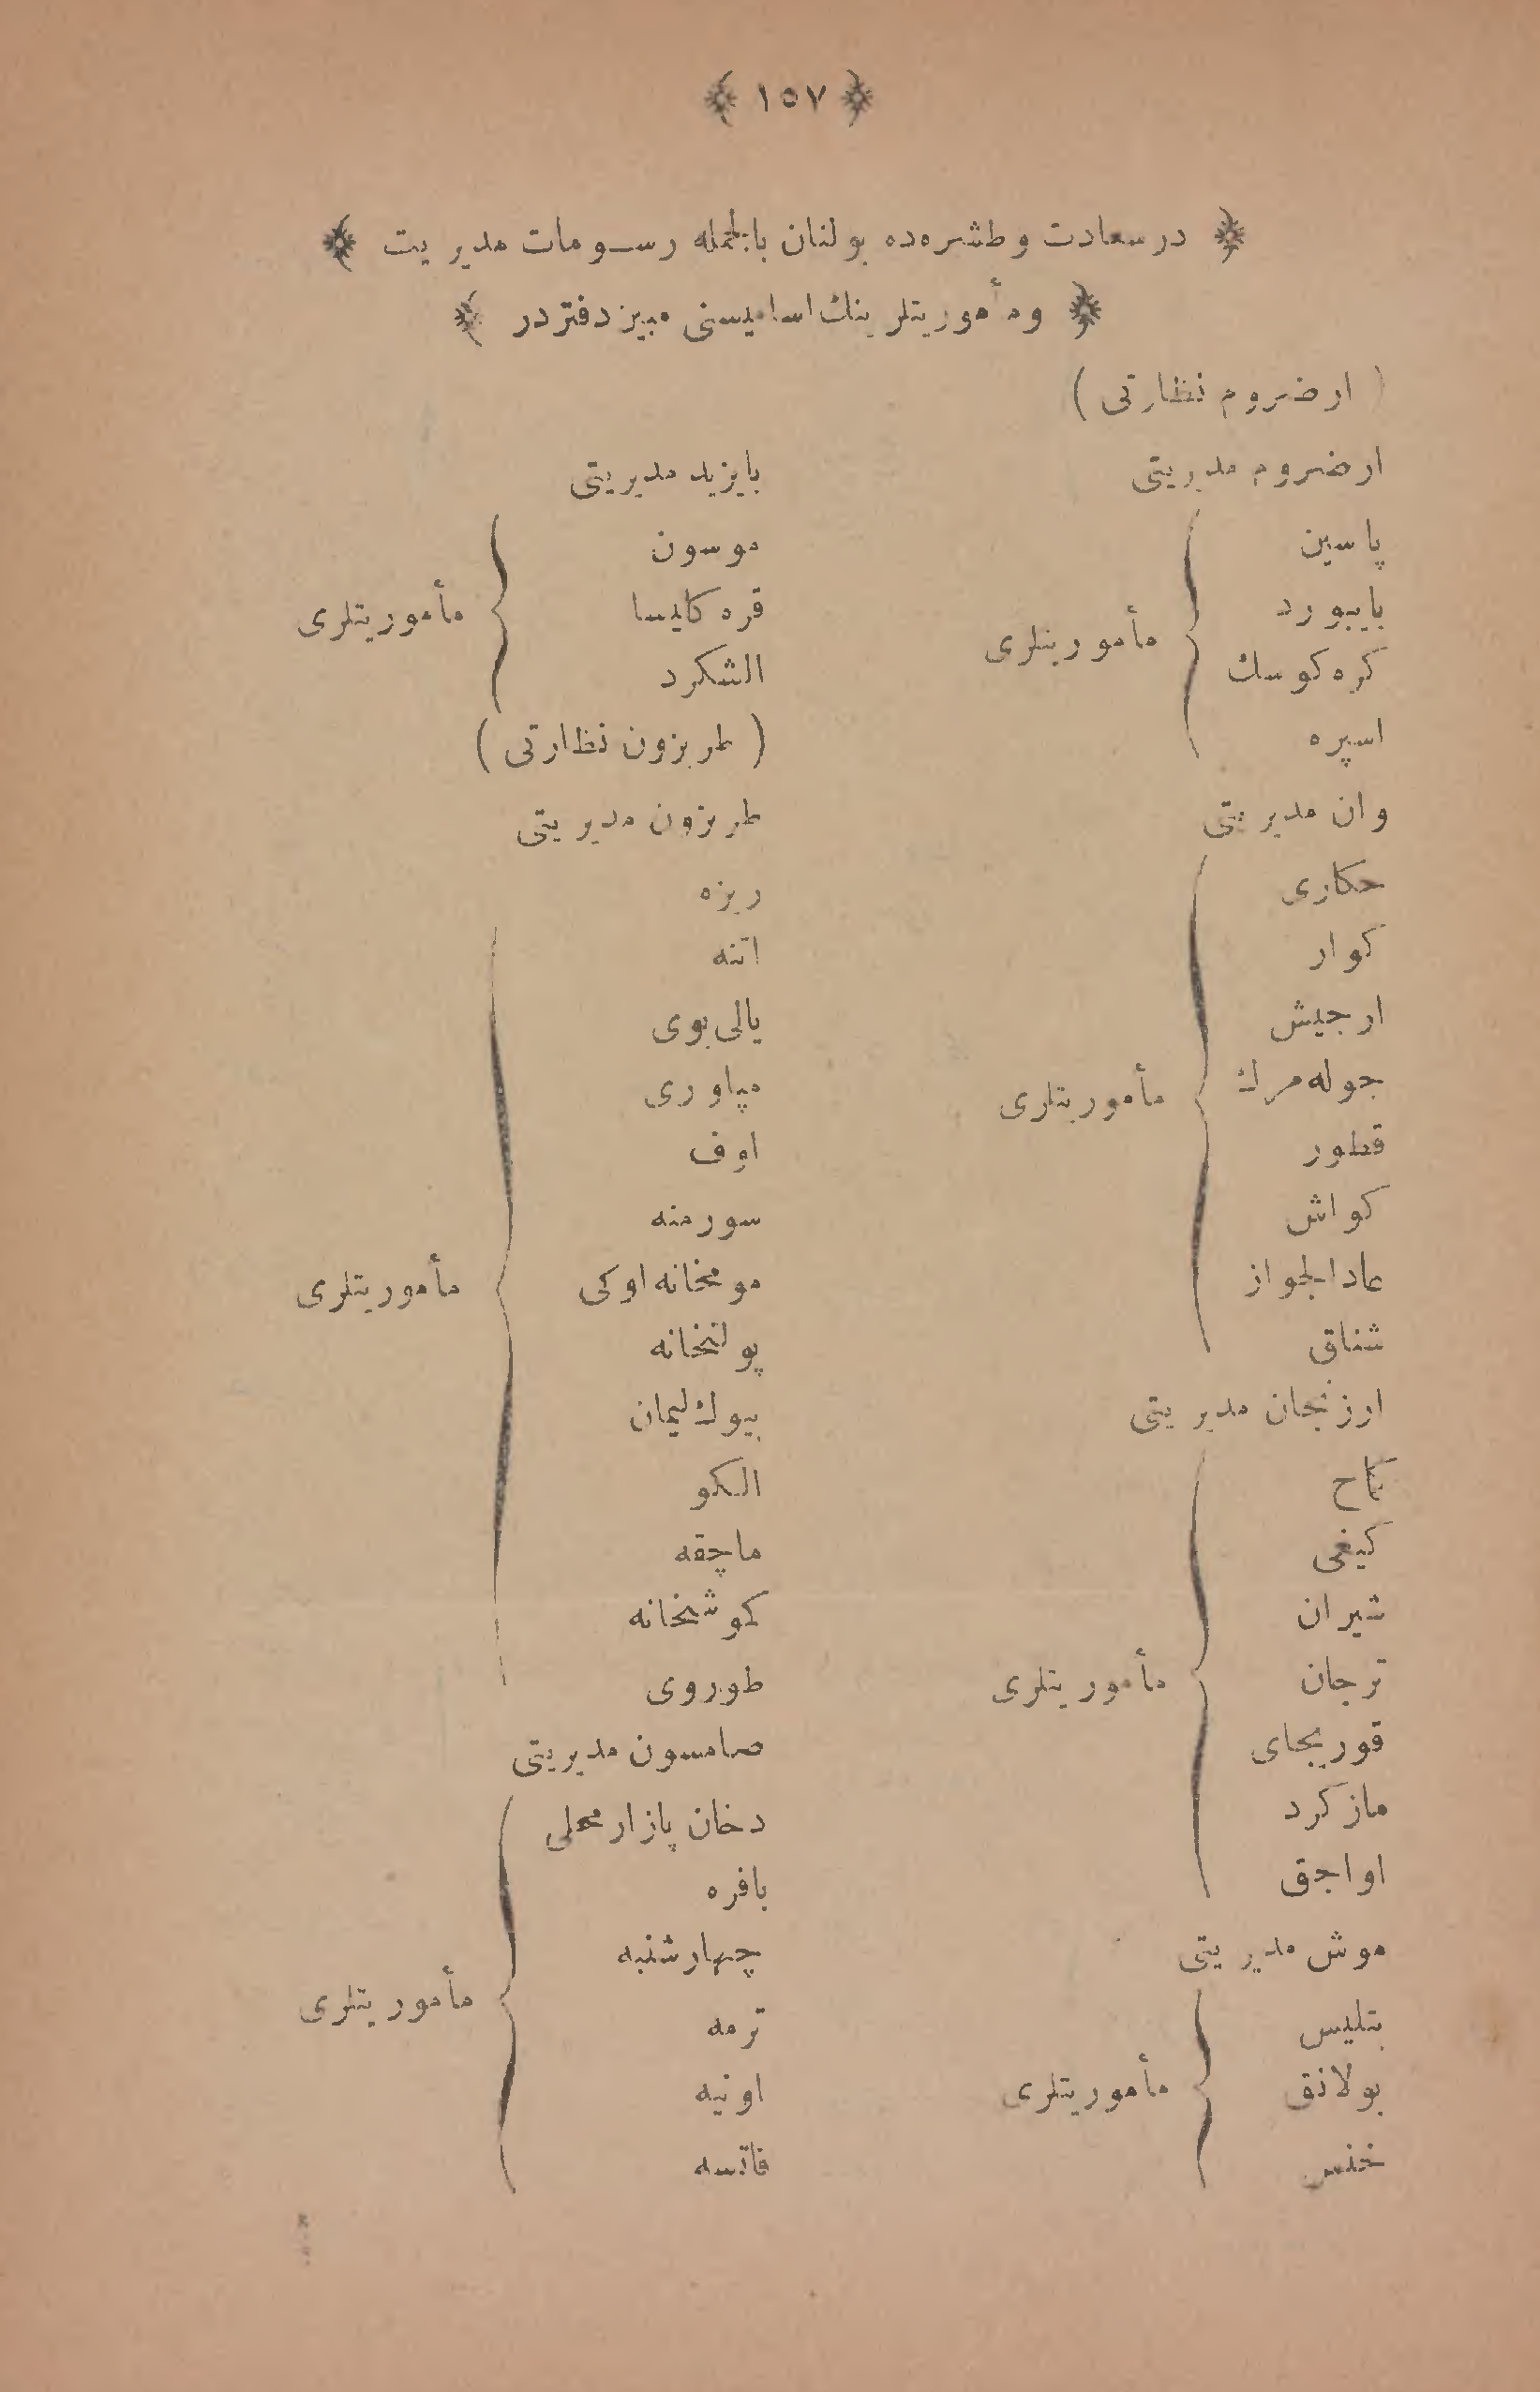 ﴿ ١٥٧ ﴾
﴿ درسعادت وطشره‌ده بولنان بالجمله رسومات مديريت ﴾
﴿ ومأموريتلرينك اساميسنى مبيز دفتردر ﴾
( ارضروم نظارتى )
ارضروم مديريتى
پاسين
بايبورد
كره كوسك
اسپره
مأموريتلرى
وان مديريتى
حكارى
كوار
ارجيش
جوله‌مرك
قطور
كواش
عادالجواز
شناق
مأموريتلرى
ارزنجان مديريتى
كماح
كيغى
شيران
ترجان
قوريچاى
مازكرد
اواجق
مأموريتلرى
موش مديريتى
بتليس
بولانق
خنس
مأموريتلرى
بايزيد مديريتى
موسون
قره كليسا
الشكرد
مأموريتلرى
( طربزون نظارتى )
طربزون مديريتى
ريزه
اتنه
يالى‌بوى
مپاورى
اوف
سورمنه
مومخانه اوكى
پولنخانه
بيوك ليمان
الكو
ماچقه
كموشخانه
طوروى
مأموريتلرى
صامسون مديريتى
دخان پازار محلى
بافره
چهارشنبه
ترمه
اونيه
فاتسه
مأموريتلرى